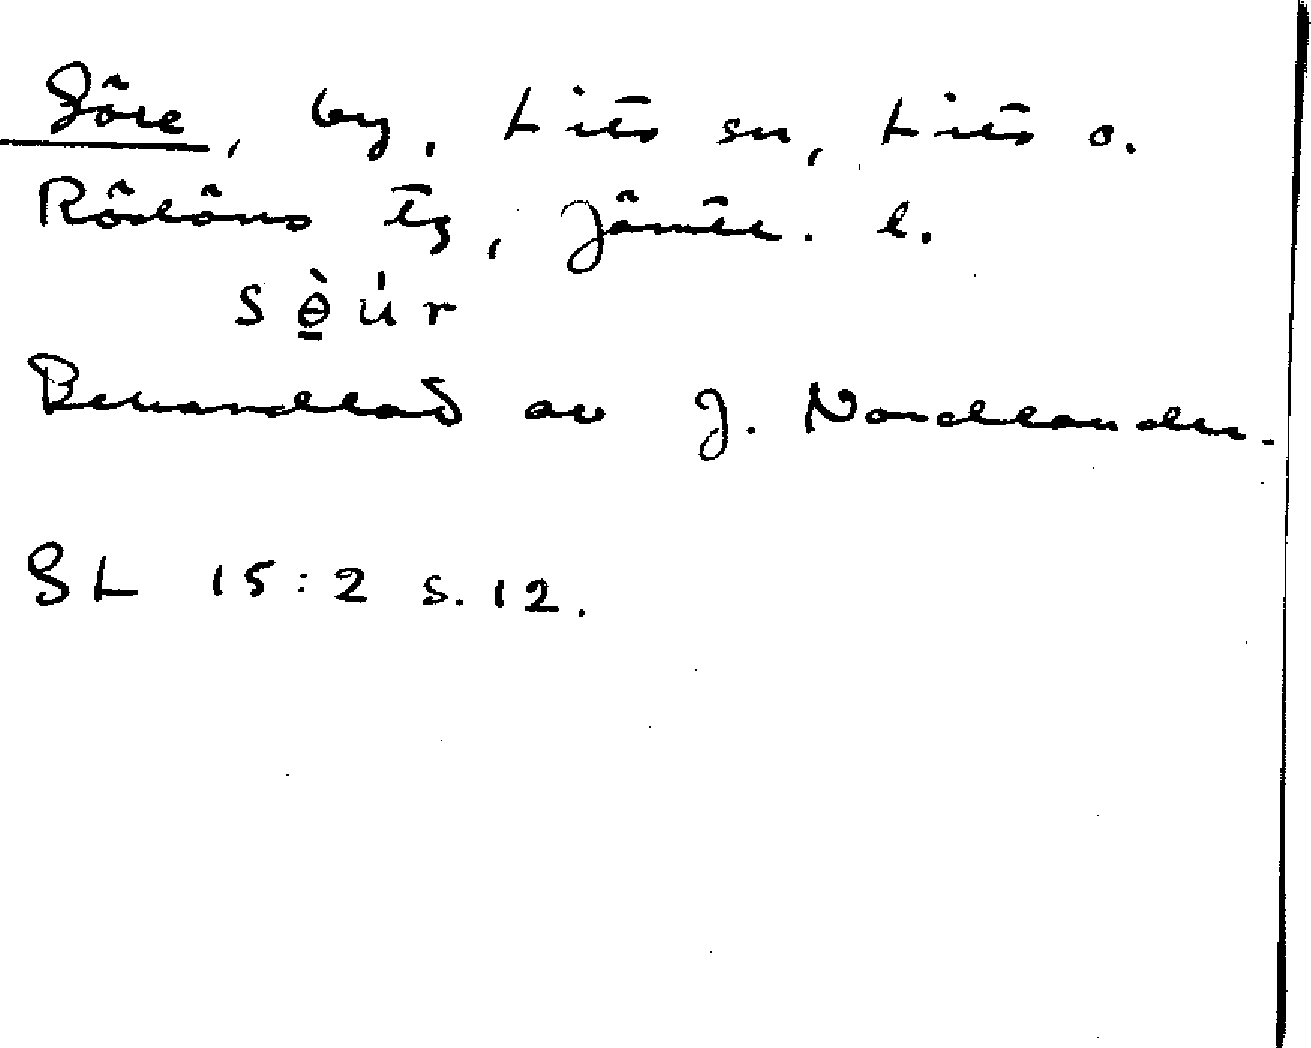 Söre, by, Lits sn, Lits o.
Rödöns tg, Jämtl. l.
sə̲̀úr
Behandlad av J. Nordlander.
SL 15:2 s. 12.